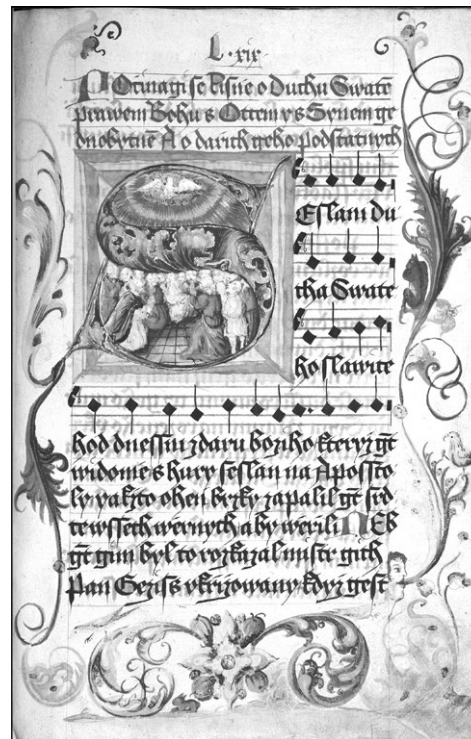 L·xix·
POcinagi se Pisnie o Duchu Swate
prawem Bohu s Otcem y s Synem ge
dnobytne A o darich geho podstatnych
ESlani du
cha Swate
ho slawite
hod dnessni z daru bozho kteryz gt
widome s hury seslan na Aposſto
ly yakzto ohen brzky zapalil gt srd
te wssech wiernych aby wierili NEb
gt gim byl to rozkazal mistr gich
Pan Gezjss vkrizowany kdyz gest